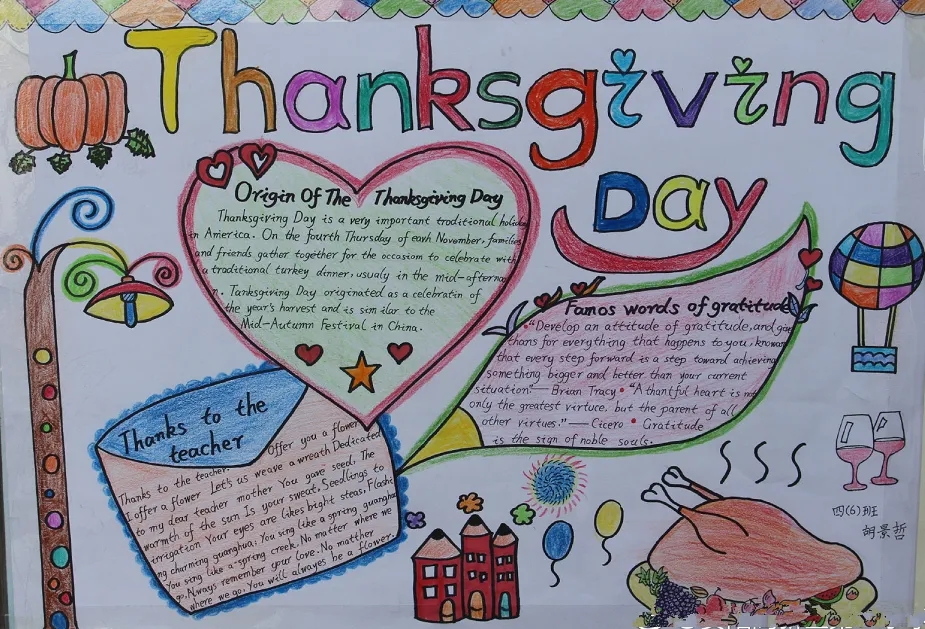 Thanksgiving
Day
Origin Of The Thanksgiving Day
Thanksgiving Day is a very important traditional holiday
in America. On the fourth Thursday of eavh November, families
and friends gather together for the occasion to celebrate with
a traditional turkey dinner, usualy in the mid-afternoo
n. Tanksgiving Day originated as a celebratin of
the year's harvest and is similar to the
Mid-Autumn Festival in China.
Famos words of gratitude
"Develop an attitude of gratitude, and give
thans for everything that happens to you, knowan
that every step forward is a step toward achieving
something bigger and better than your current
situation." — Brian Tracy • "A thantful heart is not
only the greatest virtuce, but the parent of all
other virtues." — Cicero • Gratitude
is the sign of noble souls.
Thanks to the
teacher
Offer you a flower
Thanks to the teacher.
I offer a flower Let's us weave a wreath Dedicated
to my dear teacher mother You gave seed, The
warmth of the sun Is your sweat, Seedlings to
irrigation Your eyes are likes bright steas, Flashi
ng charming guanghua; You sing like a spring, guanghua
You sing like a spring creek. No matter where we
go, Always remember your love. No matther
where we go, You will always be a flower.
四(6)班
胡景哲